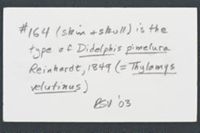 #164 (skin + skull) is the
type of Didelphis pimelura
Reinhardt, 1849 (= Thylamys
velutinus)
RSV '03